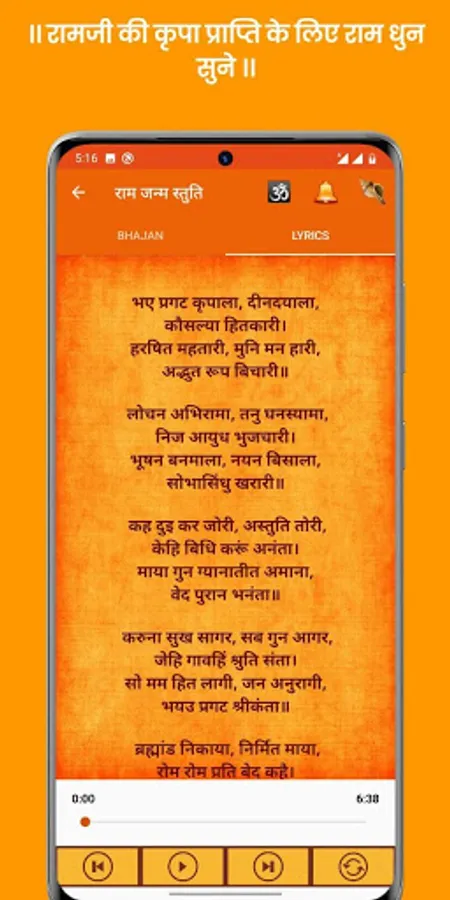 ॥ रामजी की कृपा प्राप्ति के लिए राम धुन
सुने ॥
5:16
राम जन्म स्तुति
BHAJAN
LYRICS
भए प्रगट कृपाला, दीनदयाला,
कौसल्या हितकारी।
हरषित महतारी, मुनि मन हारी,
अद्भुत रूप बिचारी॥
लोचन अभिरामा, तनु घनस्यामा,
निज आयुध भुजचारी।
भूषन बनमाला, नयन बिसाला,
सोभासिंधु खरारी॥
कह दुइ कर जोरी, अस्तुति तोरी,
केहि बिधि करूं अनंता।
माया गुन ग्यानातीत अमाना,
वेद पुरान भनंता॥
करुना सुख सागर, सब गुन आगर,
जेहि गावहिं श्रुति संता।
सो मम हित लागी, जन अनुरागी,
भयउ प्रगट श्रीकंता॥
ब्रह्मांड निकाया, निर्मित माया,
रोम रोम प्रति बेद कहै।
0:00
6:38